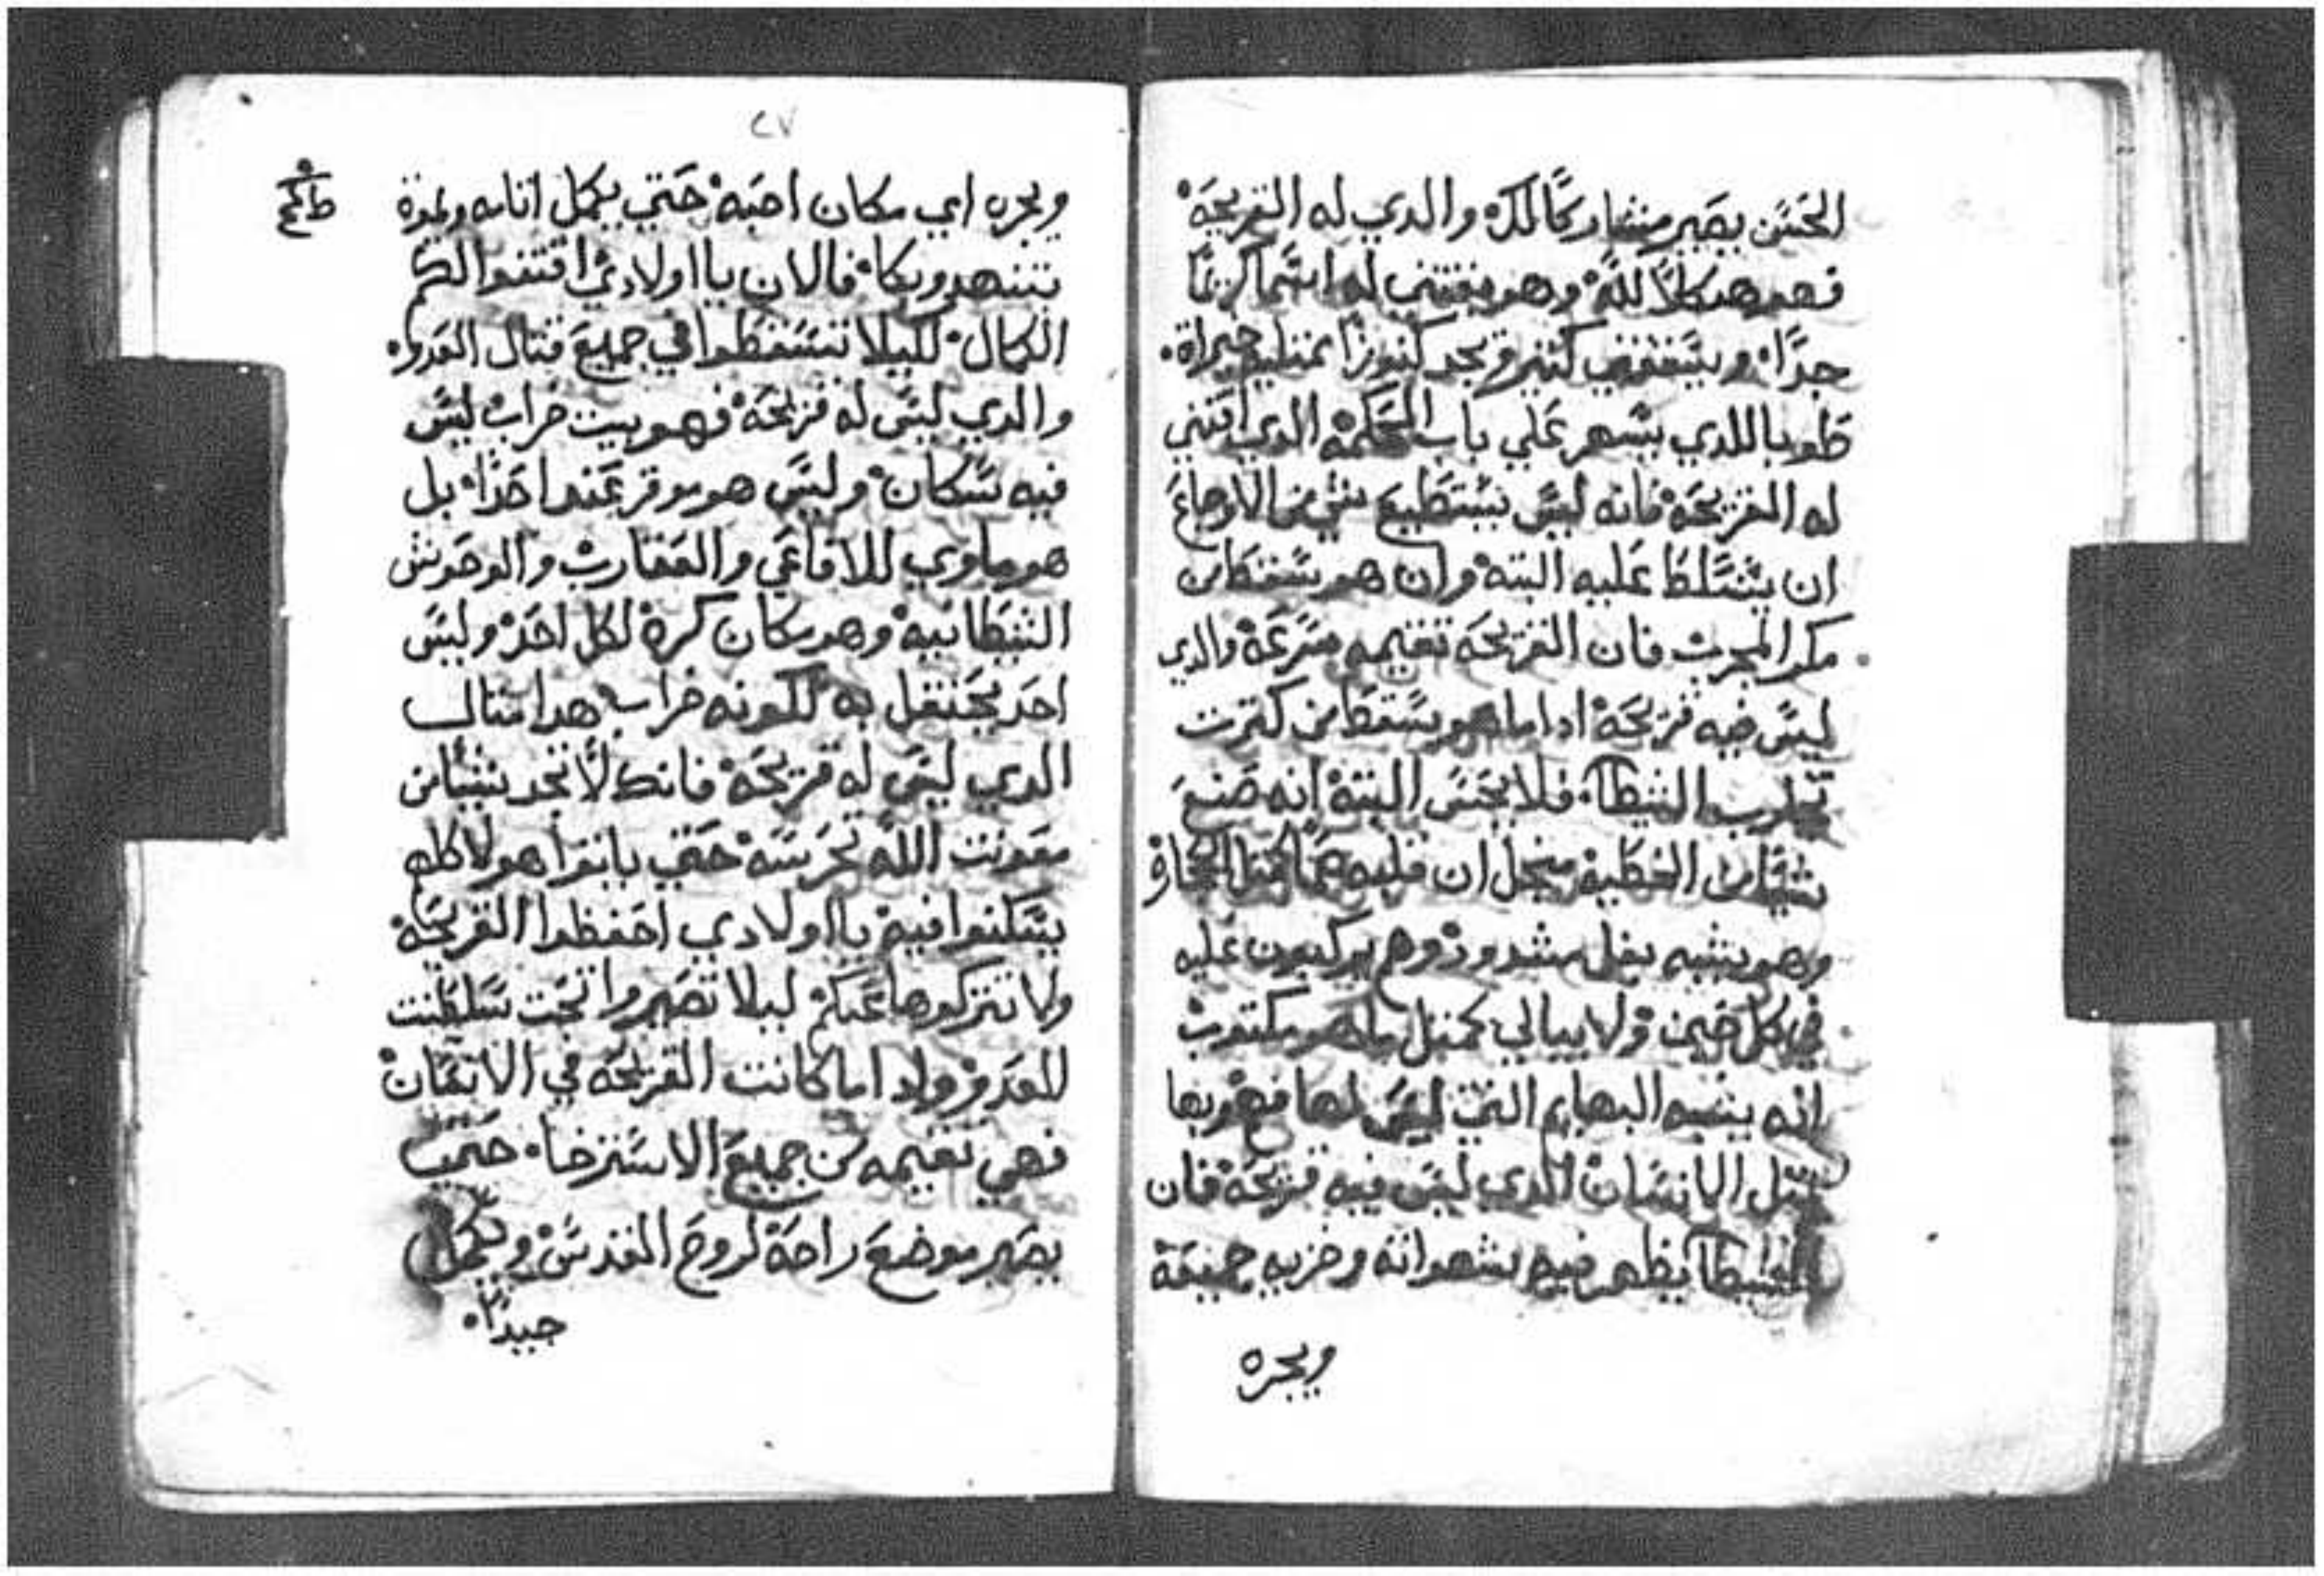 الحسن بصير مشاركًا لك والدي له القريحة
فهو هيكلاً لله وهو يقتني له اسمًا كريمًا
جدًا ويستغني كتير ويجد كنوزًا
طوبا للدي يسهر علي باب الحكمة الدي اقتني
له القريحة فانه ليس يستطيع شي من الاوجاع
ان يتسلط عليه البتة وان هو سقط من
مكر المجرب فان القريحة تقيمه سرعة والدي
ليس فيه قريحة ادا ما هو يسقط من كترت
الشيطان فلا يحس البتة انه صنع
شيًا من الخطية منجل ان قلبه كمتل الحجارة
وهو يشبه بغل مشدود وهم يركبون عليه
في كل حين ولا يبالي كمتل ما هو مكتوب
انه يشبه البهايم التي ليس لها فهو بها
متل الانسان الدي ليس فيه قريحة فان
الشيطان يظهر فيه بشهواته وخزيه جميعة
ويجره
٢٧
ويجره اي مكان احبه حتي يكمل اتامه وعدة
بتنهد وبكا فالان يا اولادي اقتنوا لكم
الكمال لكيلا تسقطوا في جميع قتال العدو
والدي ليس له قريحة فهو بيت خراب ليس
فيه سكان وليس هو موقر عند احدًا بل
هو ماوي للافاعي والعقارب والوحوش
الشيطانية وهو مكان كره لكل احد وليس
احد يحتفل به لكونه خراب هدا متال
الدي ليس له قريحة فانك لا تجد شيًا من
معونت الله تحرسه حتي بانوا هولا كله
يسكنوا فيه يا اولادي احفظوا القريحة
ولا تتركوها عنكم ليلا تصيروا تحت سلطنت
للعدو واد اما كانت القريحة في الانسان
فهي تقيمه من جميع الاسترخا حتي
يصير موضع راحة لروح القدس ويكمل
جيدًا